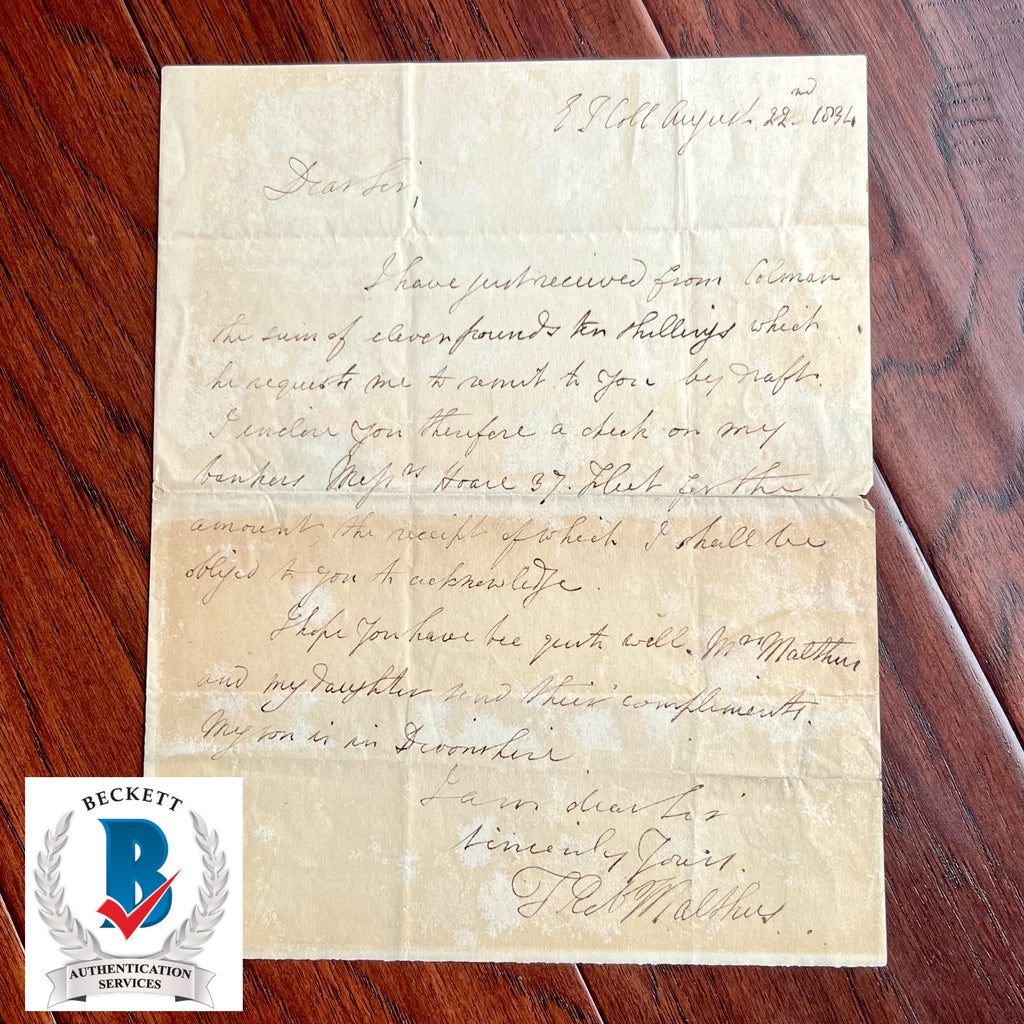 E I Coll August 22nd 1834
Dear Sir,
I have just received from Colman
the sum of eleven pounds ten shillings which
he requests me to remit to you by draft.
I inclose you therefore a check on my
bankers Messrs Hoare 37. Fleet for the
amount, the receipt of which I shall be
obliged to you to acknowledge.
I hope you have bee quite well. Mrs Malthus
and my daughter send their compliments.
My son is in Devonshire
I am dear Sir
sincerely Yours.
T Robt Malthus.
BECKETT
B
AUTHENTICATION
SERVICES